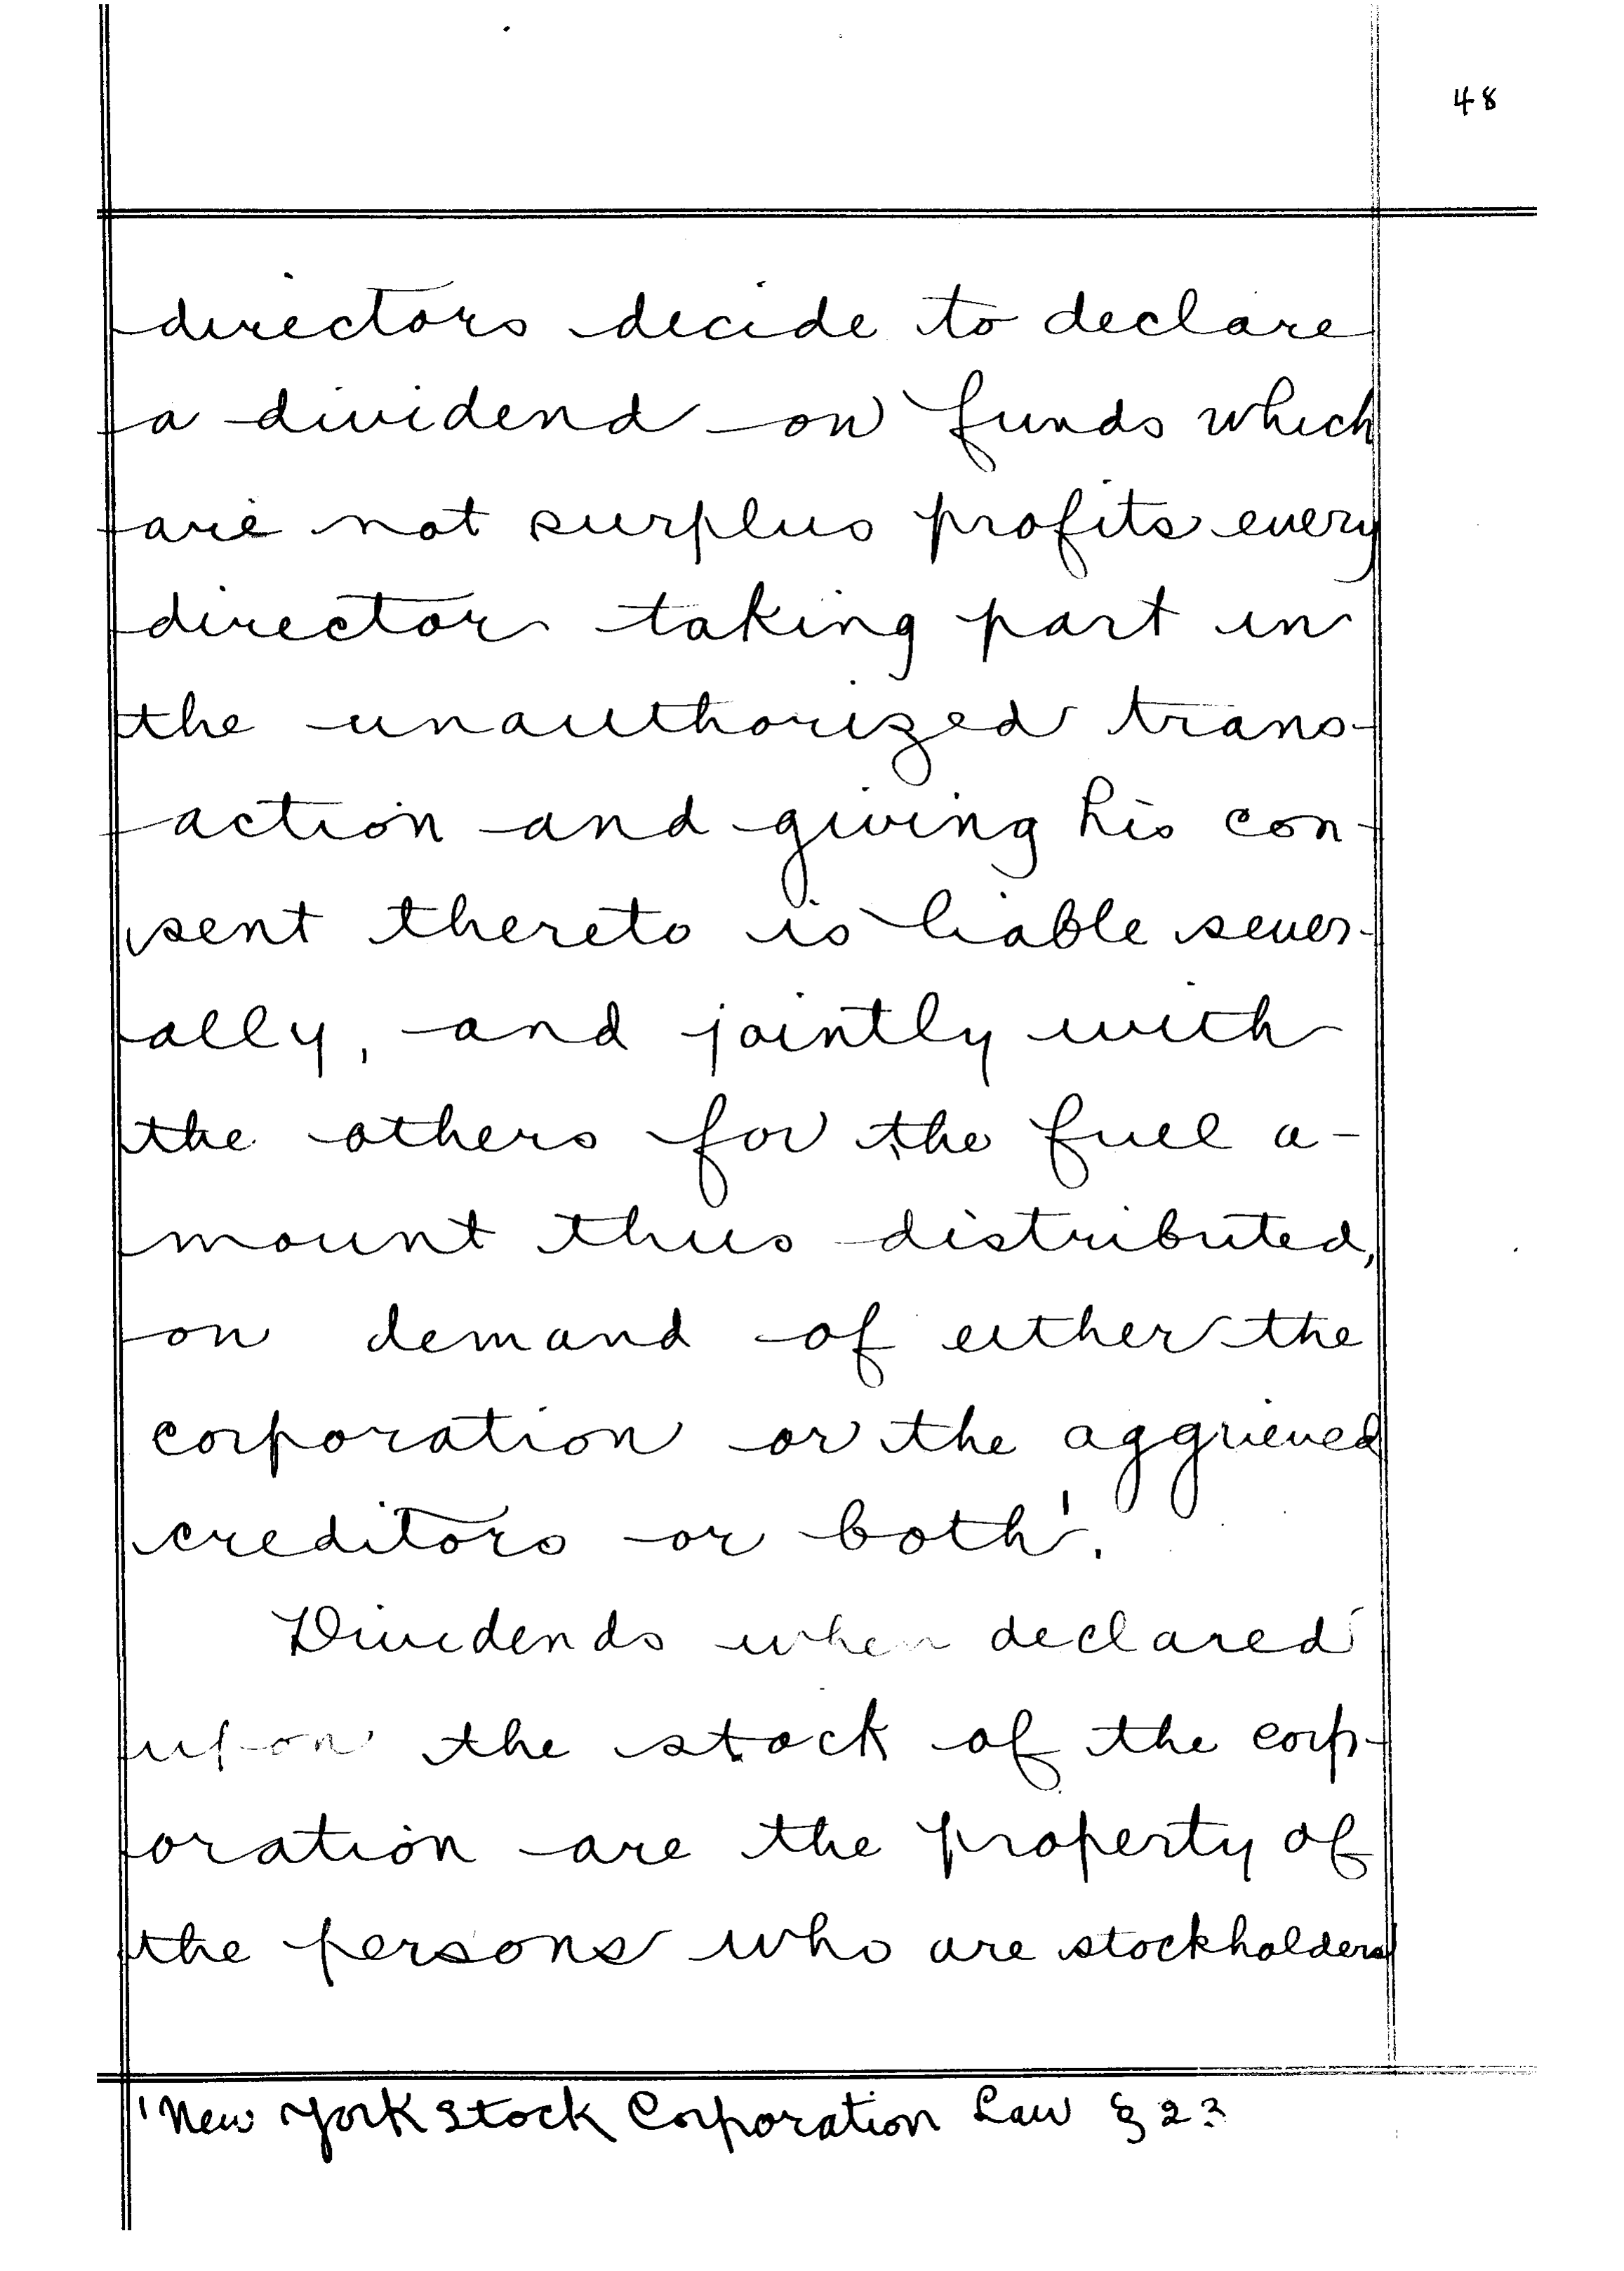 48
directors decide to declare
a dividend on funds which
are not surplus profits every
director taking part in
the unauthorized trans-
action and giving his con-
sent thereto is liable sever-
ally, and jointly with
the others for the full a-
mount thus distributed,
on demand of either the
corporation or the aggrieved
creditors or both¹.
Dividends when declared
upon the stock of the corp-
oration are the property of
the persons who are stockholders
¹ New York Stock Corporation Law § 23